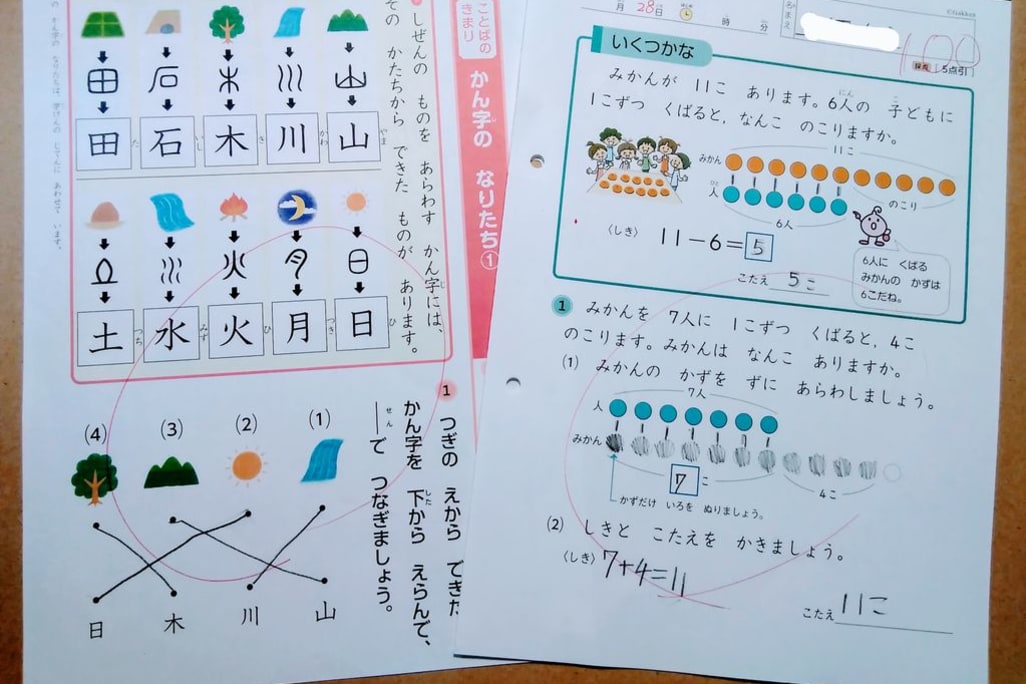 ことばの
きまり
かん字の なりたち①
しぜんの ものを あらわす かん字には、
その かたちから できた ものが あります。
山 やま
川 かわ
木 き
石 いし
田 た
日 ひ
月 つき
火 ひ
水 みず
土 つち
1 つぎの えから できた
かん字を 下から えらんで、
──で つなぎましょう。
(1)
(2)
(3)
(4)
山
川
木
日
月 28日 時 分
なまえ
©Gakken
100
採点 1つ5点引
いくつかな
みかんが 11こ あります。6人の 子どもに
1こずつ くばると,なんこ のこりますか。
11こ
みかん
人
6人
のこり
〈しき〉 11-6=5
こたえ 5こ
6人に くばる
みかんの かずは
6こだね。
1 みかんを 7人に 1こずつ くばると,4こ
のこります。みかんは なんこ ありますか。
(1) みかんの かずを ずに あらわしましょう。
7人
人
みかん
7こ
4こ
かずだけ いろを ぬりましょう。
(2) しきと こたえを かきましょう。
〈しき〉7+4=11
こたえ 11こ